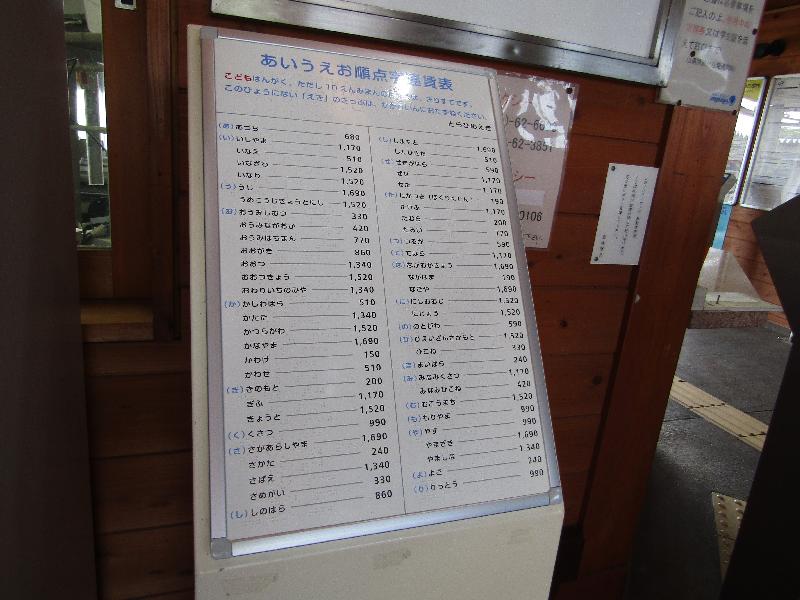 あいうえお順点字運賃表
こどもはんがく、ただし10えんみまんの
このひょうにない「えき」のきっぷは、
とらひめえき
(あ)あづち 680
(い)いしやま 1,170
いなえ 510
いなぎわ 1,520
いなり 1,520
(う)うじ 1,690
うめこうじきょうとにし 1,520
(お)おうみしおつ 330
おうみながおか 420
おうみはちまん 770
おおがき 860
おおつ 1,340
おおつきょう 1,520
おわりいちのみや 1,340
(か)かしわばら 510
かたた 1,340
かつらがわ 1,520
かなやま 1,690
かわけ 150
かわせ 510
(き)きのもと 200
ぎふ 1,170
きょうと 1,520
(く)くさつ 990
(さ)さがあらしやま 1,690
さかた 240
さばえ 1,340
さめがい 330
(し)しのはら 860
(し)しまもと 1,690
しんひきた 510
(せ)せきがはら 590
ぜぜ 1,170
せた 1,170
たむら 200
(つ)つるが 590
(て)てはら 1,170
(な)ながおかきょう 1,690
ながはま 190
なごや 1,690
(に)にしおおじ 1,520
にじょう 1,520
(の)のとがわ 590
(ひ)ひえいざんさかもと 1,520
ひこね 330
(ま)まいばら 240
(み)みなみくさつ 1,170
みなみひこね 420
(む)むこうまち 1,520
(も)もりやま 990
(や)やす 990
やまざき 1,690
やましな 1,340
(よ)よご 240
(り)りっとう 990
62-3851
0106